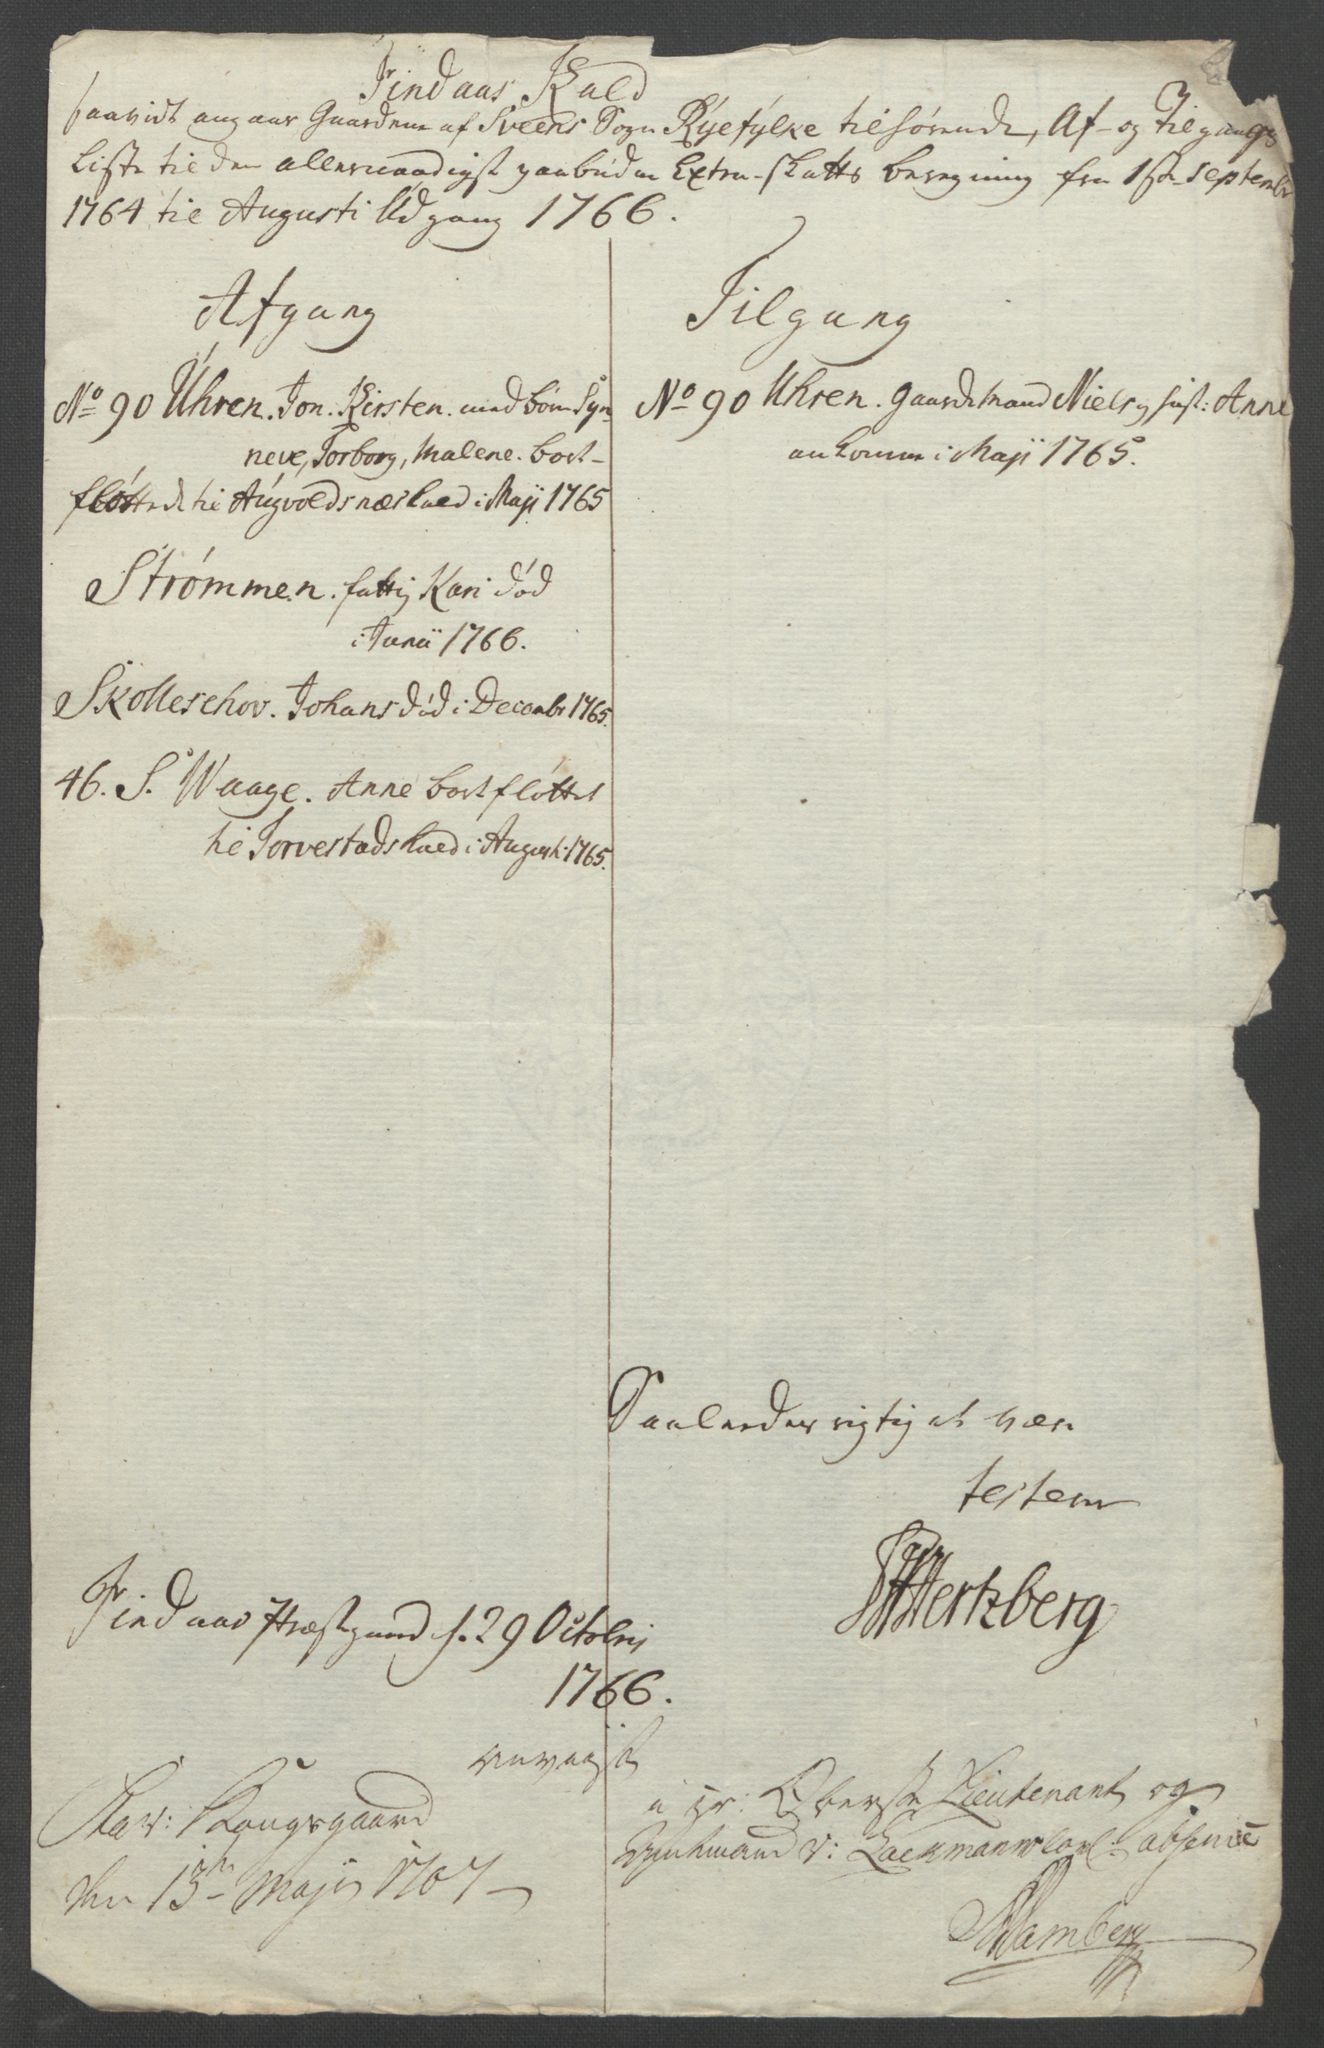 Findaas Kald
saavidt angaar Gaardene af Sveens Sogn Rÿefÿlke tilhørende, Af- og Tilgangs
Liste til den allernaadigst paabudne Extra-Skatts beregning fra 1ste September
1764 til Augusti Udgang 1766.
Afgang
No 90 Uhren. Jon. Kirsten. med børn Syn-
neve, Torborg, Malene. bort-
fløttede til Augvoldsnæs kald i Maji 1765
Strømmen. fattig Kari død
i Junii 1766.
Skolleschov. Johans død i Decembr 1765.
46. S. Waage. Anne bortfløttet
til Torvestads kald i Augusti 1765.
Tilgang
No 90 Uhren. Gaardmand Niels og hust: Anne
ankomne i Maji 1765.
Saaledes rigtig at være
testerer
Hertzberg
Findaas Præstgaard d. 29 Octobris
1766.
Stav: Kongsgaard
den 13de Maji 1767
i Hr: Oberste Lieutenant og
Amtmand v: absence